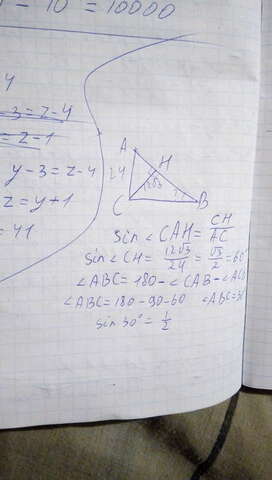 - 10 = 10000
4
-3=z-4
=z-1
y-3=z-4
z=y+1
=41
A
24
H
12√3
C
B
sin∠CAH=CH/AC
sin∠CH=12√3/24=√3/2=60°
∠ABC=180-∠CAB-∠ACB
∠ABC=180-90-60 ∠ABC=30
sin30°=1/2